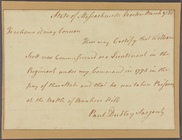 State of Massachusetts
To whom it may Concern
This may Certify that William
Scott was Commissioned as a Lieutenant in the
Regiment under my Command in 1775 in the
Pay of this State and that he was taken Prisoner
at the battle of Bunkers Hill
Paul Dudley Sargent